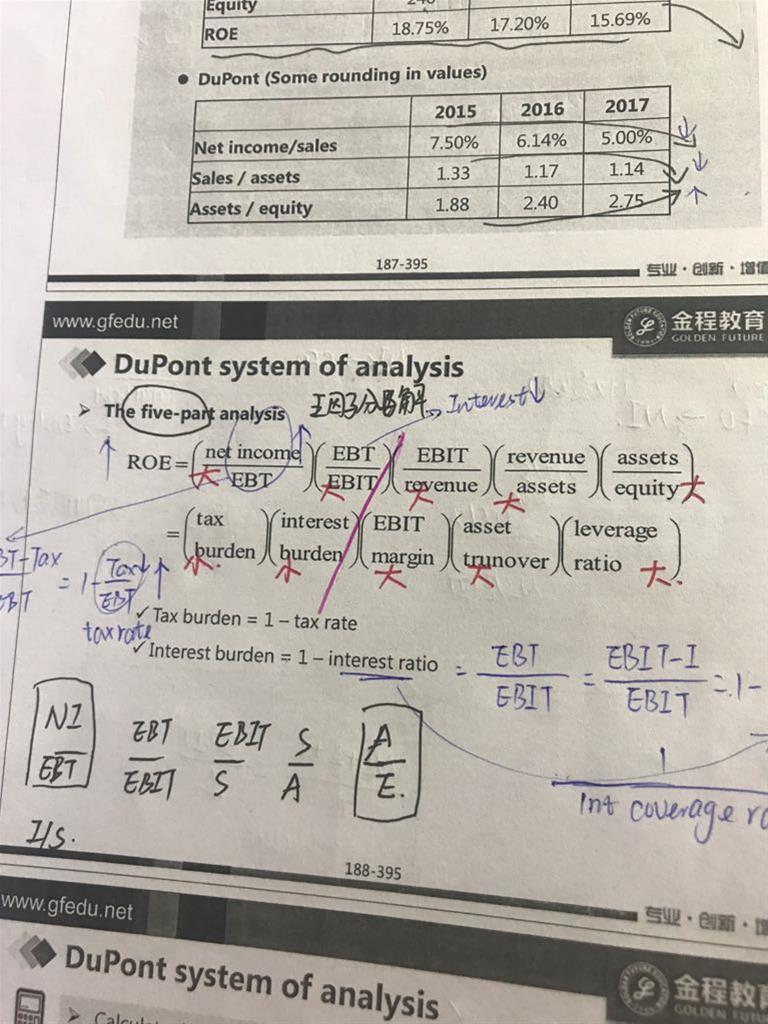 Equity
ROE 18.75% 17.20% 15.69%
● DuPont (Some rounding in values)
2015 2016 2017
Net income/sales 7.50% 6.14% 5.00% ↓
Sales / assets 1.33 1.17 1.14 ↓
Assets / equity 1.88 2.40 2.75 ↑
187-395
专业·创新·增值
www.gfedu.net
金程教育
GOLDEN FUTURE
DuPont system of analysis
➢ The five-part analysis 五因子分解 Interest↓
↑ ROE = (net income / EBT) (EBT / EBIT) (EBIT / revenue) (revenue / assets) (assets / equity)
大 大 大 大 大
= (tax burden) (interest burden) (EBIT margin) (asset trunover) (leverage ratio)
小 小 大 大 大
BT-Tax / EBT = 1 - Tax↓ / EBT ↑
tax rate
✓ Tax burden = 1 – tax rate
✓ Interest burden = 1 – interest ratio = EBT / EBIT = EBIT-I / EBIT = 1 -
1 / Int coverage
NI / EBT EBT / EBIT EBIT / S S / A A / E.
I/S.
188-395
专业·创新
www.gfedu.net
金程教育
GOLDEN FUTU
DuPont system of analysis
➢ Calcul